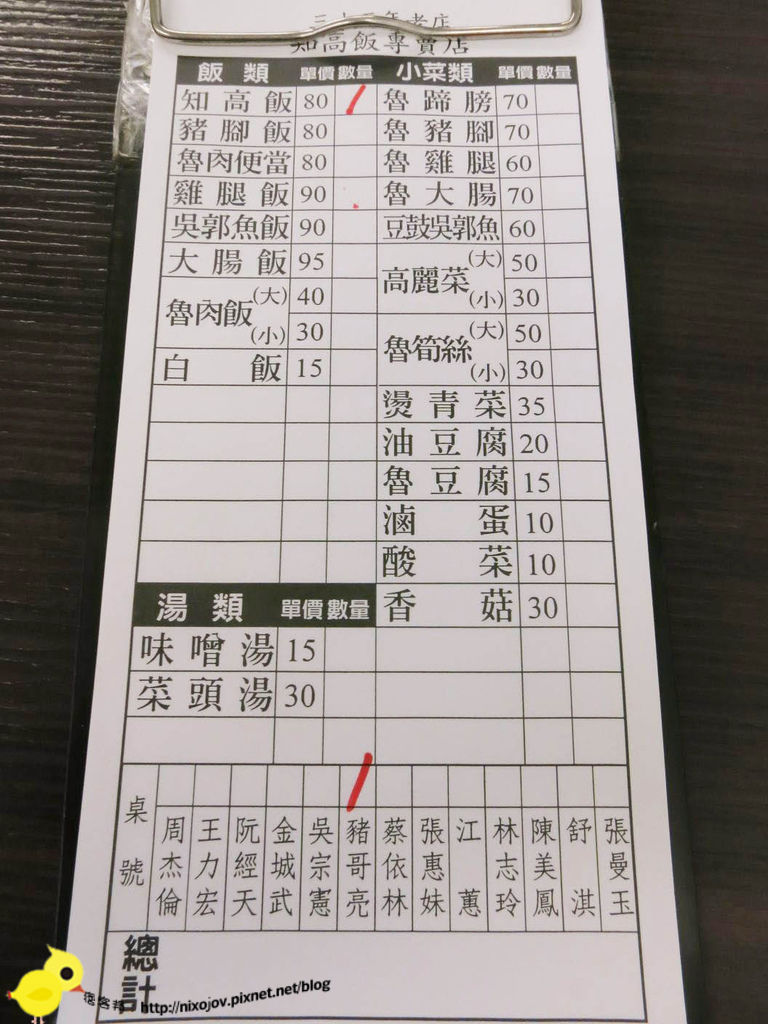 三十二年老店
知高飯專賣店
飯類 單價 數量 小菜類 單價 數量
知高飯 80 魯蹄膀 70
豬腳飯 80 魯豬腳 70
魯肉便當 80 魯雞腿 60
雞腿飯 90 魯大腸 70
吳郭魚飯 90 豆鼓吳郭魚 60
大腸飯 95 高麗菜 (大) 50
魯肉飯 (大) 40 (小) 30
(小) 30 魯筍絲 (大) 50
白飯 15 (小) 30
燙青菜 35
油豆腐 20
魯豆腐 15
滷蛋 10
酸菜 10
湯類 單價 數量 香菇 30
味噌湯 15
菜頭湯 30
桌號 周杰倫 王力宏 阮經天 金城武 吳宗憲 豬哥亮 蔡依林 張惠妹 江蕙 林志玲 陳美鳳 舒淇 張曼玉
總計
痞客邦 http://nixojov.pixnet.net/blog